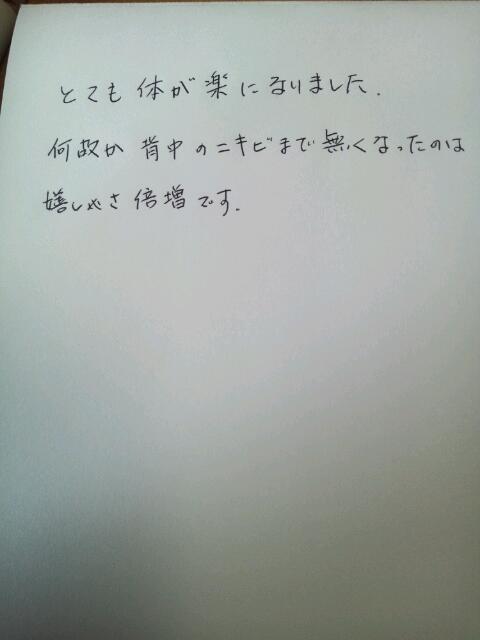 とても体が楽になりました.
何故か背中のニキビまで無くなったのは
嬉しやさ倍増です.